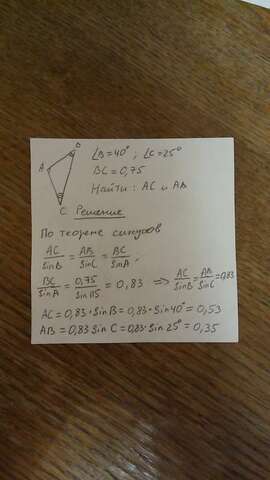 B
A
C
∠B=40°; ∠C=25°
BC=0,75
Найти: AC и AB
Решение
По теореме синусов
AC/sinB = AB/sinC = BC/sinA.
BC/sinA = 0,75/sin115 = 0,83 => AC/sinB = AB/sinC = 0,83
AC = 0,83 · sinB = 0,83 · sin40° = 0,53
AB = 0,83 sin C = 0,83 · sin 25° = 0,35